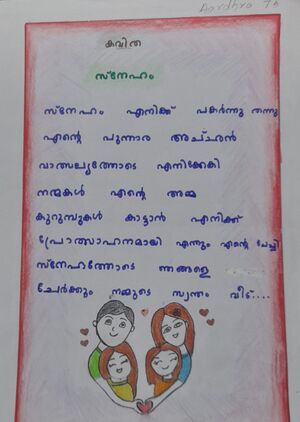 Aardhra
കവിത
സ്നേഹം
സ്നേഹം എനിക്ക് പകർന്നു തന്നു
എന്റെ പുന്നാര അച്ഛൻ
വാത്സല്യത്തോടെ എനിക്കേകി
നന്മകൾ എന്റെ അമ്മ
കുറുമ്പുകൾ കാട്ടാൻ എനിക്ക്
പ്രോത്സാഹനമായി എന്നും എന്റെ ചേച്ചി
സ്നേഹത്തോടെ ഞങ്ങളെ
ചേർക്കും നമ്മുടെ സ്വന്തം വീട്....